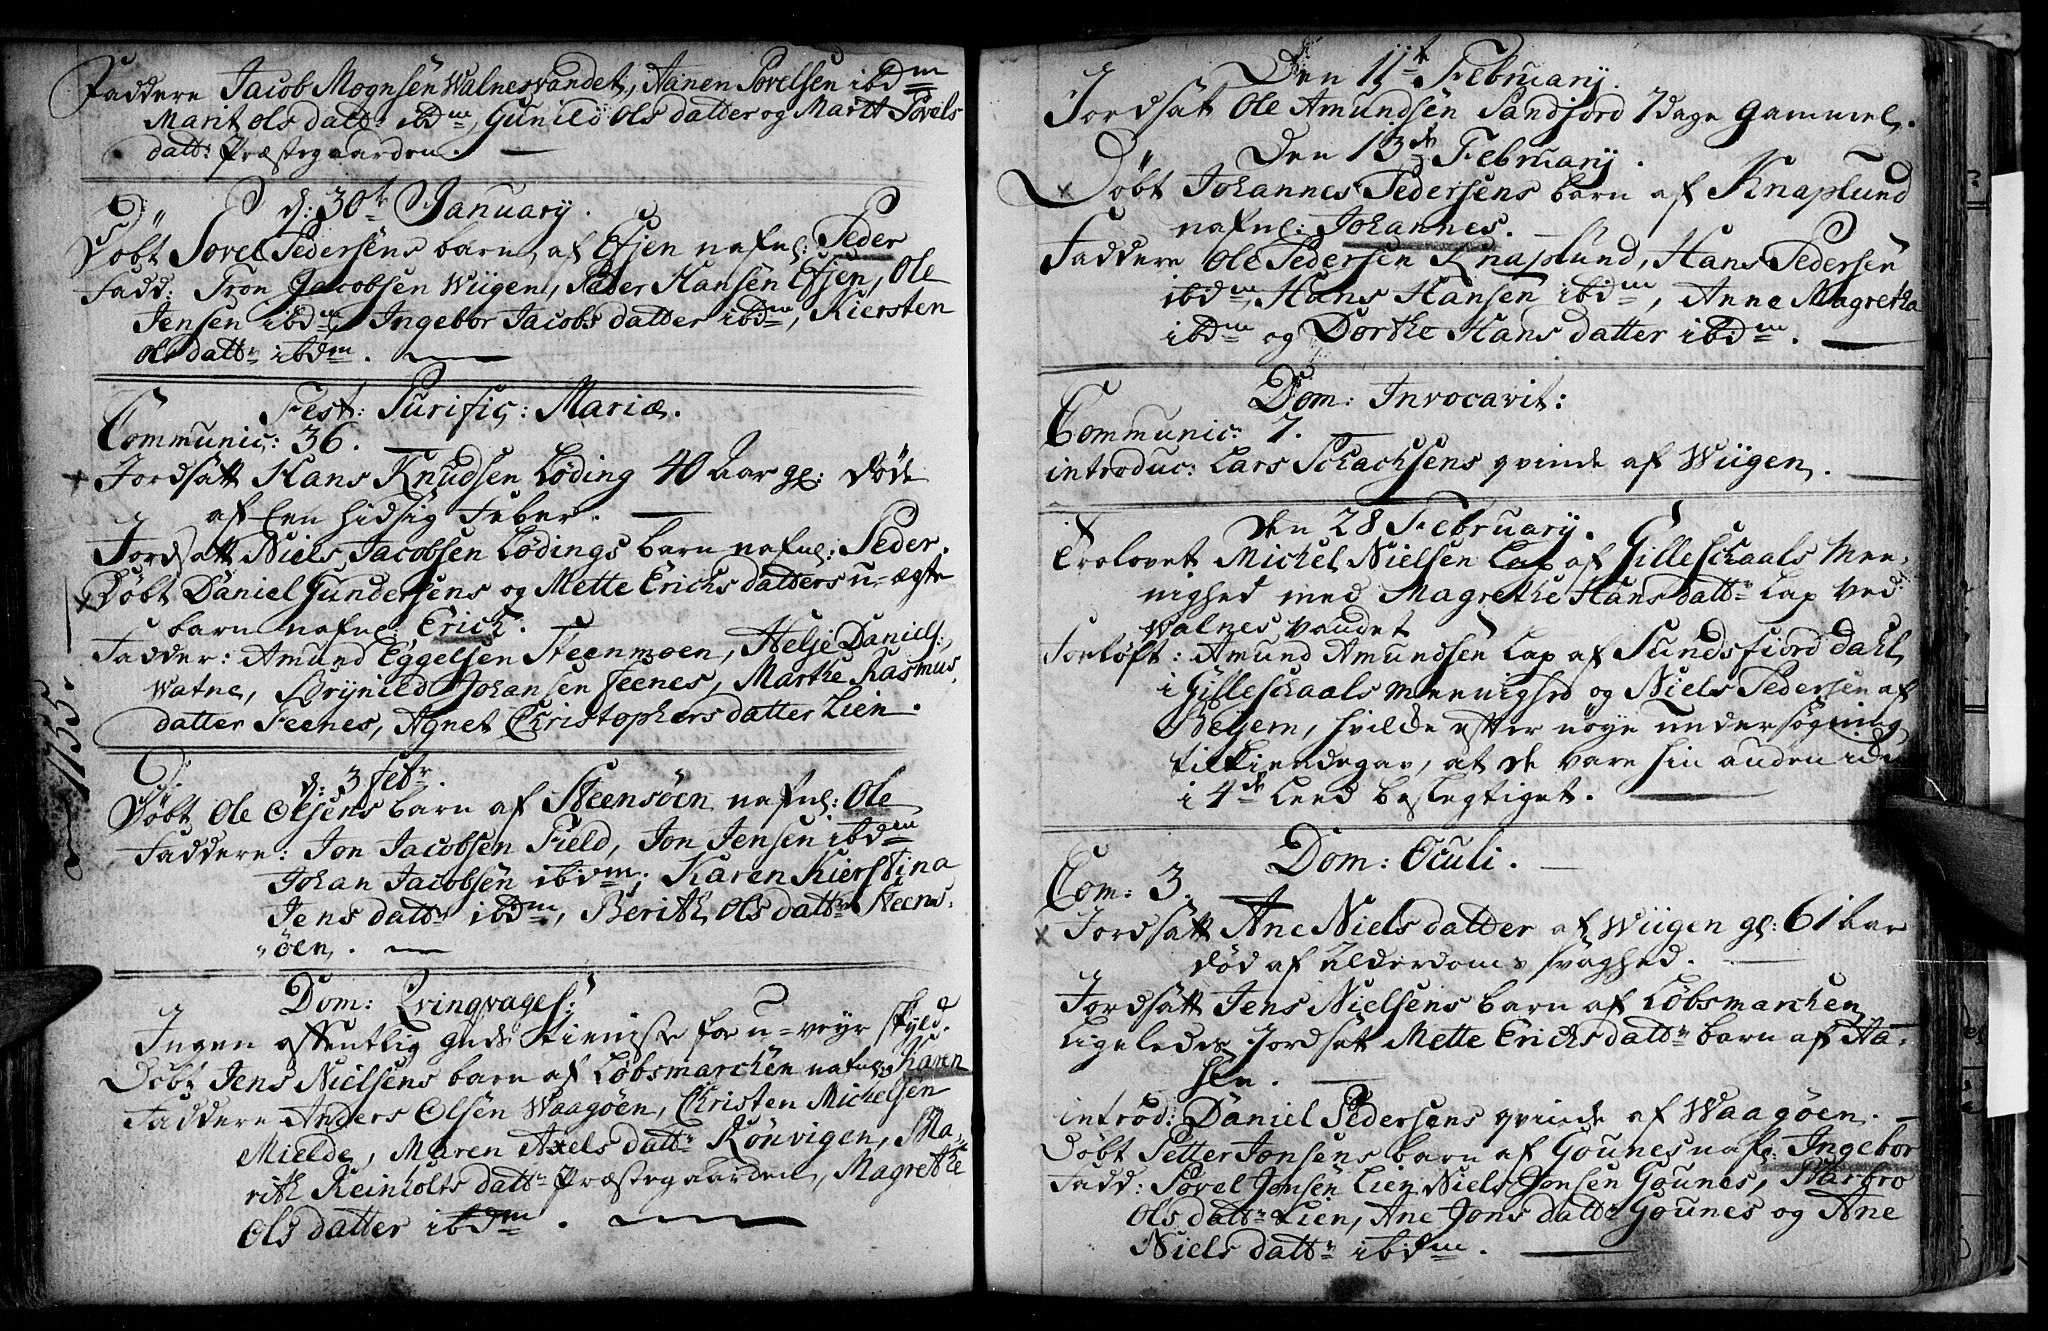 Faddere Jacob Mognsen Walnesvandet, Aanen Povelsen ibdm
Marit Ols datt: ibdm, Gunild Ols datter og Marit Povels
datt: Præstegaarden.
d: 30te January.
Döbt Povel Pedersens barn af Efjen nafnl: Peder
Fadd: Tron Jacobsen Wiigen, Peder Hansen Efjen, Ole
Jensen ibdm, Ingebor Jacobs datter ibdm, Kiersten
Ols dattr ibdm.
Fest: Purific: Mariæ.
Communic: 36.
Jordsatt Hans Knudsen Löding 40 Aar gl: döde
af een hidsig Feber.
Jordsatt Niels Jacobsen Lödings barn nafnl: Peder.
1755.
Döbt Daniel Gundersens og Mette Erichs datters u=ægte
barn nafnl Erich.
Fadder: Amund Eggelsen Steenmoen, Helje Daniels:
Watne, Brynild Johansen Feenes, Marthe Rasmus
datter Feenes, Agnet Christophers datter Lien.
d: 3 febr
Döbt Ole Olsens barn af Steensöen nafnl: Ole
Faddere: Jon Jacobsen Field, Jon Jensen ibdm
Johan Jacobsen ibdm, Karen Kierstina
Jens dattr ibdm, Berith Ols dattr Steens-
öen.
Dom: Qvinqvages:
Ingen offentlig guds tieniste for u=veyr skyld.
Döbt Jens Nielsens barn af Löbsmarchen nafnl: Karen
Faddere Anders Olsen Waagöen, Christen Michelsen
Mielde, Maren Axels dattr Rönvigen, Ma-
rith Reinholts dattr Præstegaarden, Magrethe
Ols datter ibdm.
Den 11te February.
Jordsat Ole Amundsen Sandjord 7 dage Gammel.
Den 13de February.
Döbt Johannes Pedersens barn af Knaplund
nafnl: Johannes.
Faddere Ole Pedersen Knaplund, Hans Pedersen
ibdm, Hans Hansen ibdm, Anne Magretha
ibdm og Dorthe Hans datter ibdm.
Dom: Invocavit:
Communic: 7.
introduc: Lars Schachsens qvinde af Wiigen.
Den 28 February.
Trolovet Michel Nielsen Lap af Gilleschaals Mee-
nighed med Magrethe Hans dattr Lap ved
Walnes vandet
Forlöft: Amund Amundsen Lap af Sundsfiord dahl
i Gilleschaals meenighed og Niels Pedersen af
Beljern, hvilde efter nöye undersögning
tilkiendegav, at de vare hin anden
i 4de Leed beslegtiget.
Dom: Oculi.
Com: 3.
Jordsatt Ane Niels datter af Wiigen gl: 61 Aar
död af Alderdoms svaghed.
Jordsatt Jens Nielsens barn af Löbsmarchen
Ligeledes Jordsat Mette Erichs dattr barn af Aa-
sen.
introd: Daniel Pedersens qvinde af Waagöen.
Döbt Petter Jonsens barn af Gounes naf: Ingebor
Fadd: Povel Jonsen Lien, Niels Jonsen Gounes, Marbro
Ols dattr Lien, Ane Jons dattr Gounes og Ane
Niels dattr ibdm.